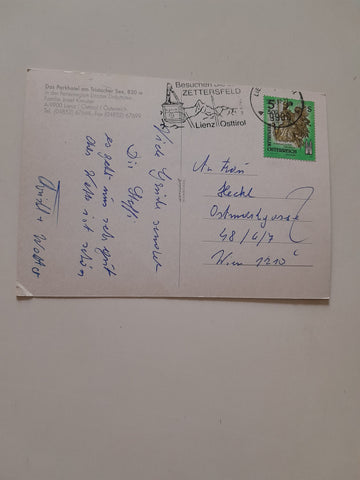 Das Parkhotel am Tristacher See, 830 m
in der Ferienregion Lienzer Dolomiten
Familie Josef Kreuzer
A-9900 Lienz / Osttirol / Österreich
Tel. (04852) 67666, Fax (04852) 67699
Besuchen Sie
ZETTERSFELD
Lienz Osttirol
9900
5 S
ÖSTERREICH
Viele Grüße sendet
Dir Steffi
es geht uns sehr gut
Das Hotel ist schön
An Frau
Heckl
Ostmarkgasse
48/6/7
Wien 1210